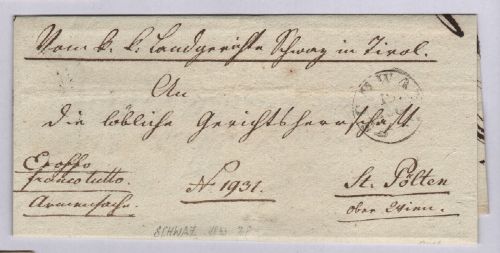 Vom k. k. Landgerichte Schwaz in Tirol.
An
die löbliche Gerichtsherrschaft
Ex offo
franco tutto.
Armensache.
No 1931.
St. Pölten
ober Wien.
SCHWAZ